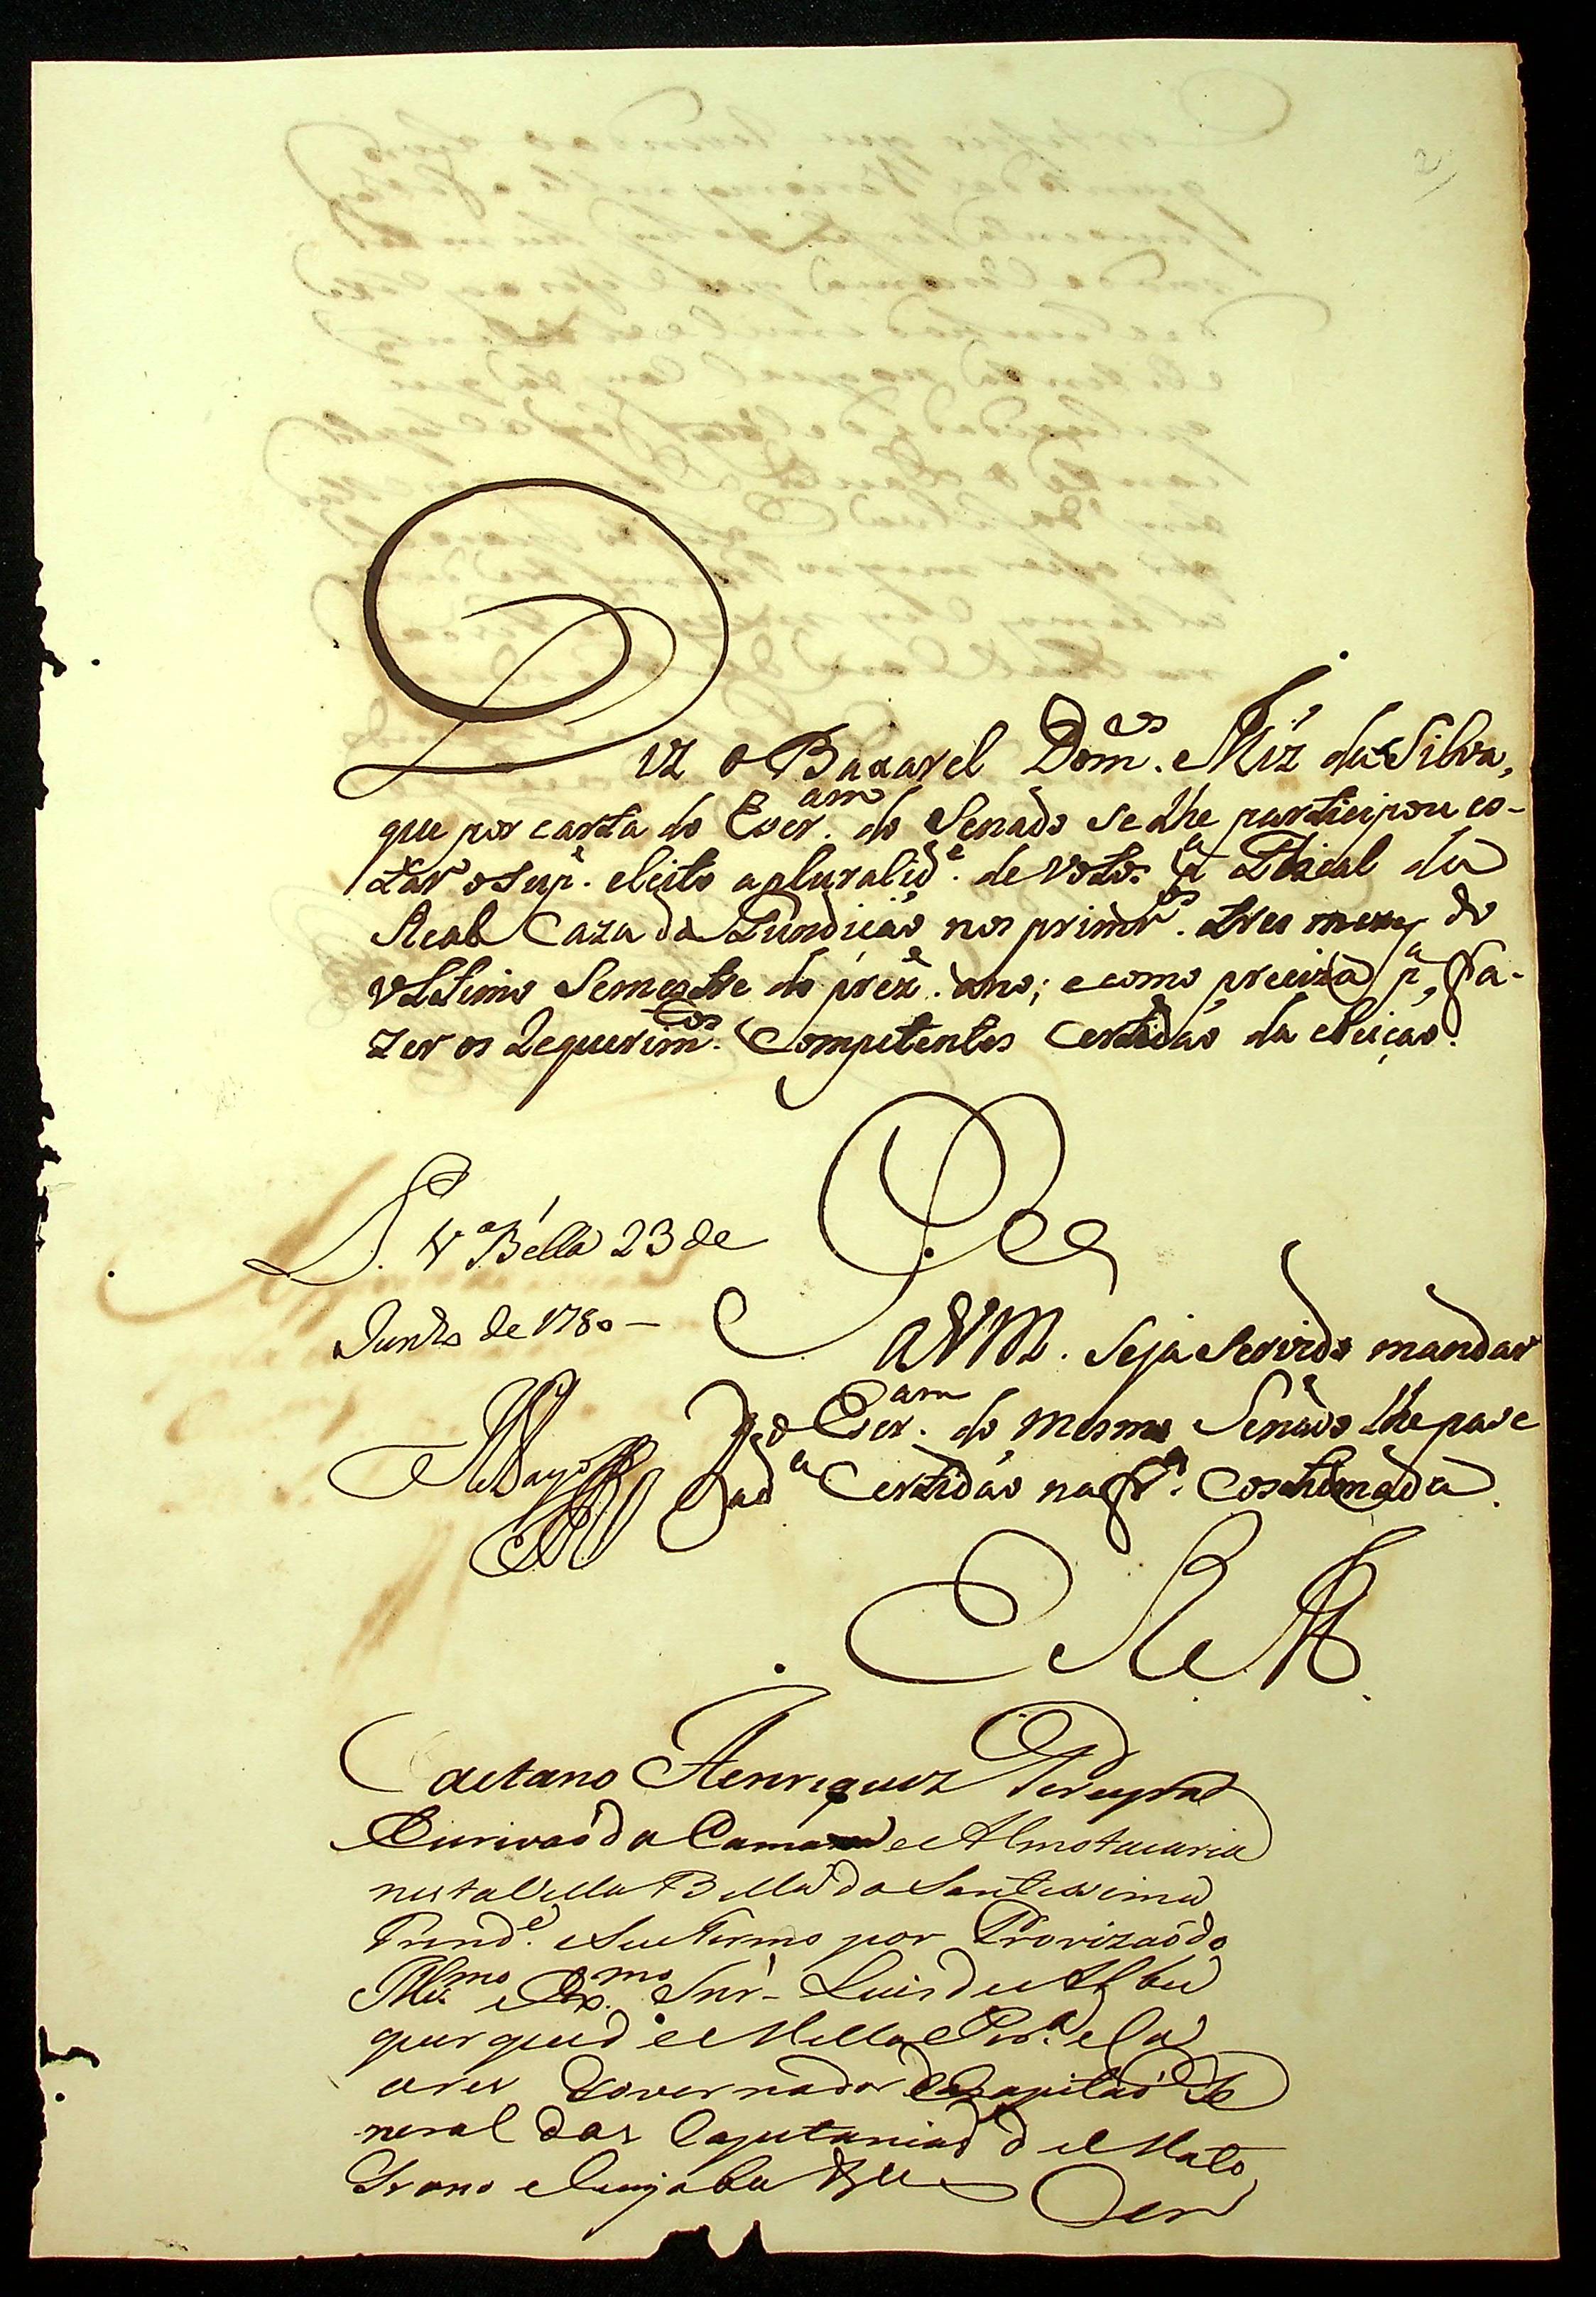 Diz o Baxarel Dom.os Miz da Silva,
que por carta do Escr.am do Senado se lhe participou es-
tar o sup.e eleito a pluralid.e de votos p.a Fiscal da
Real Caza da Fundição nos primr.os tres mezes do
vltimo Semestre do prez.e ano; e como preciza p.a fa-
zer os Requerim.tos Competentes Certidão da eleição.
P. V.a Bella 23 de
Junho de 1780 —
P.
a VM. Seja Servido mandar
q o Escr.am do mesmo Senado lhe pase
a d.a Certidão na fr.a Costumada
E R M.
Caetano Henriquez Pereyra
Escrivaõ da Camara e Almotacaria
nesta Villa Bella da Santissima
Trind.e e Seu Termo por Provizaõ do
Ill.mo e Ex.mo Snr. Luis de Albu
querque de Mello Per.a e Ca
ceres Governador e Capitaõ Ge
neral das Capitanias de Mato
Groso e Cuyaba &
Cer